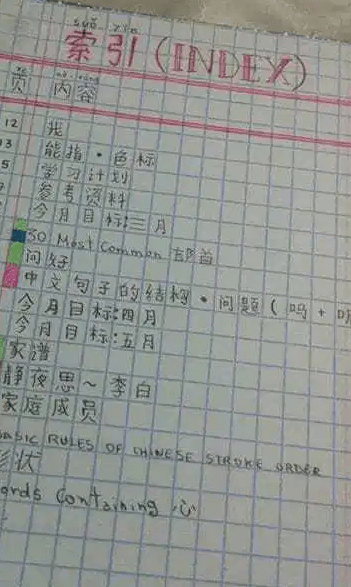 suǒ yǐn
索引 (INDEX)
页 内容
12
13 能指・色标
5 学习计划
参考资料
今月目标:三月
30 Most Common 部首
问好
中文句子的结构・问题 (吗 +
今月目标:四月
今月目标:五月
家谱
静夜思~李白
家庭成员
BASIC RULES OF CHINESE STROKE ORDER
形状
ords containing 心